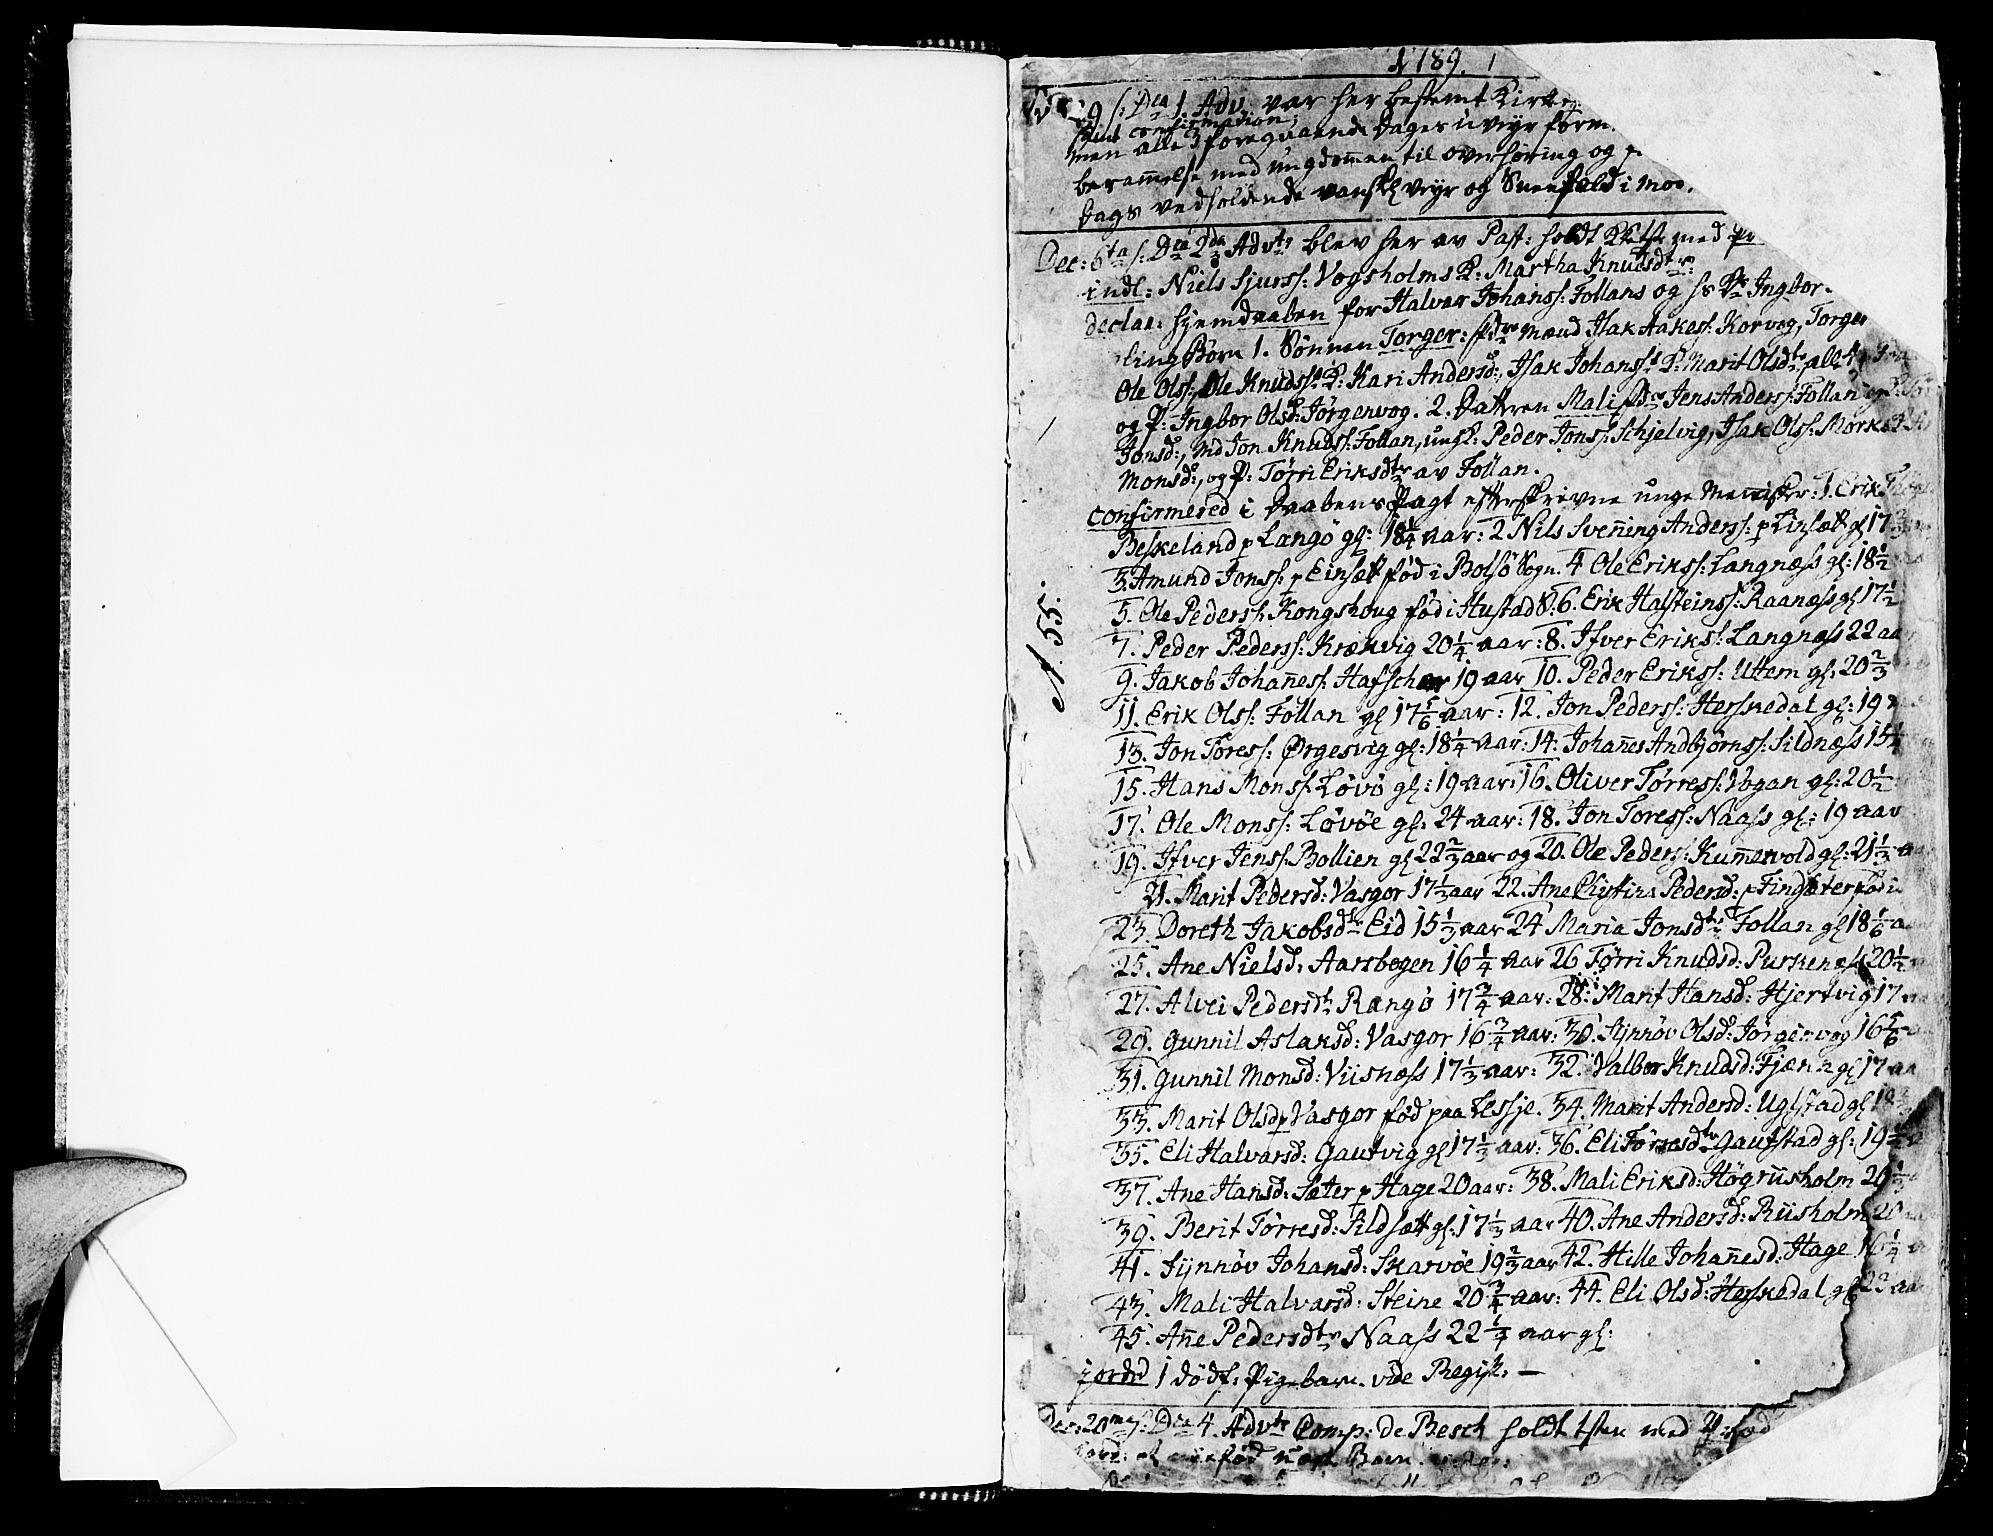 1789. 1
29 s: Dca 1. Adv. var her bestemt Kirke
samt confirmation;
men alle 3 foregaaende Dages uveyr form
berammelse med ungdommen til overhøring og
Dags vedholdende vanskl veyr og Sneefald i Mod
Dec: 6ta s: Dca 2da Advts blev her av Past: holdt med pr
indl: Niels Sjurss: Vogsholms K: Martha Knudsdtr:
declar: hjemdaaben for Halvar Johanss: Follans og hs Ks Ingbor
ling Børn 1. Sønnen Torger: fdr Mænd Isak Aakes: Korvog, Torger
Ole Olss: Ole Knudss: K: Kari Andersd:, Isak Johanss: K: Marit Olsdtr alle
og P: Ingbor Olsd: Jørgenvog. 2. Datteren Mali fdr Jens Anderss: Follan og
Jonsd:, Md Jon Knudss: Follan, ungK: Peder Jonss: Schjelvig, Isak Olss: Mork
Monsd:, og P: Tørri Eriksdtr av Follan.
confirmered i Daabens Pagt efterskrevne unge Menisker: 1. Erik
Beskeland p Langø gl: 18 1/4 aar: 2 Nils Svening Anderss: p Linsæt gl 17
3. Amund Jonss: p Einsæt fød i Bolsø Sogn. 4 Ole Erikss: Langnæss gl: 18 1/2
5. Ole Pederss: Kongshoug fød i Hustad S: 6. Erik Halsteinss: Raanæss gl 17 1/2
7. Peder Pederss: Krækvig 20 1/4 aar: 8. Ifver Erikss: Langnæss 22 aa
9. Jakob Johañess: Hafschær 19 aar 10. Peder Erikss: Uttem gl: 20 2/3
11. Erik Olss: Follan gl 17 1/6 aar: 12. Jon Pederss: Herskedal gl: 19
13. Jon Toress: Ørgesvig gl: 18 1/4 aar: 14. Johañes Andbjørnss: Sildnæss 15 1/4
15. Hans Monss: Løvø gl: 19 aar: 16. Oliver Tørress: Vogan gl: 20 1/2
17. Ole Monss: Løvöe gl: 24 aar: 18. Jon Toress: Naass gl: 19 aar
19. Ifver Jenss: Bollien gl 22 2/3 aar og 20. Ole Pederss: Kum̃ervold gl: 21 1/3 a
21. Marit Pedersd: Vasgor 17 1/3 aar 22. Ane Chistina Pedersd: p Findsæter fød i
23. Doreth Jakobsdtr Eid 15 1/3 aar 24 Maria Jonsdtr Follan gl 18 1/6 a
25. Ane Nielsd: Aarsbogen 16 1/4 aar 26 Tørri Knudsd: Purskenæs 20 1/2
27. Alvei Pedersdtr Rangö 17 3/4 aar: 28. Marit Hansd: Hjertvig 17
29. Gunnil Aslaksd: Vasgor 16 3/4 aar: 30. Synnöv Olsd: Jörgenvog 16 5/6
31. Gunnil Monsd: Viisnæss 17 1/3 aar: 32. Valbor Knudsd: Fjæren gl 17 aa
33. Marit Olsd p Vasgor fød paa Lessje. 34. Marit Andersd: Uglstad gl
35. Eli Halvarsd: Gautvig gl 17 1/3 aar: 36. Eli Tørresdtr Gautstad gl: 19
37. Ane Hansd: Sæter p Hage 20 aar: 38. Mali Eriksd: Högrusholm 20 1/3
39. Berit Tørresd: Sildsæt gl: 17 1/3 aar 40. Ane Andersd: Riisholm 20
41. Synnöv Johansd: Skarvöe 19 2/3 aar 42. Hille Johañesd: Hage 16 1/4 a
43. Mali Halvarsd: Steine 20 3/4 aar: 44. Eli Olsd: Herskedal gl 22 aa
45. Añe Pedersdtr Naass 22 1/4 aar gl:
jordd 1 dødf: Pigebarn. vide Regist: —
Dec: 20me s: Dca 4. Advts Comp: de Besch holdt tsten med
fød Barn
S: 51.